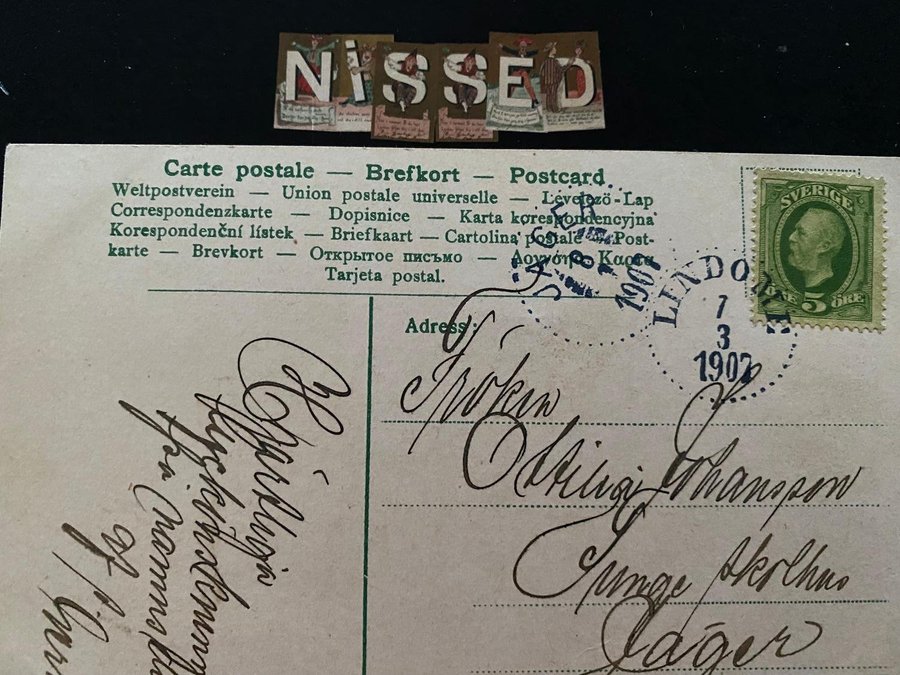 NiSSED
Carte postale — Brefkort — Postcard
Weltpostverein — Union postale universelle — Levelező-Lap
Correspondenzkarte — Dopisnice — Karta korespondencyjna
Korespondenční lístek — Briefkaart — Cartolina postale — Post-
karte — Brevkort — Открытое письмо — Δουτόρη Καρτα
Tarjeta postal.
SVERIGE
5
ÖRE
JAGER
8
1907
LINDOME
7
3
1907
Adress:
Fröken
Ottilia Johansson
Skolhus
Jäger
Hjärtlig
lyckönskning